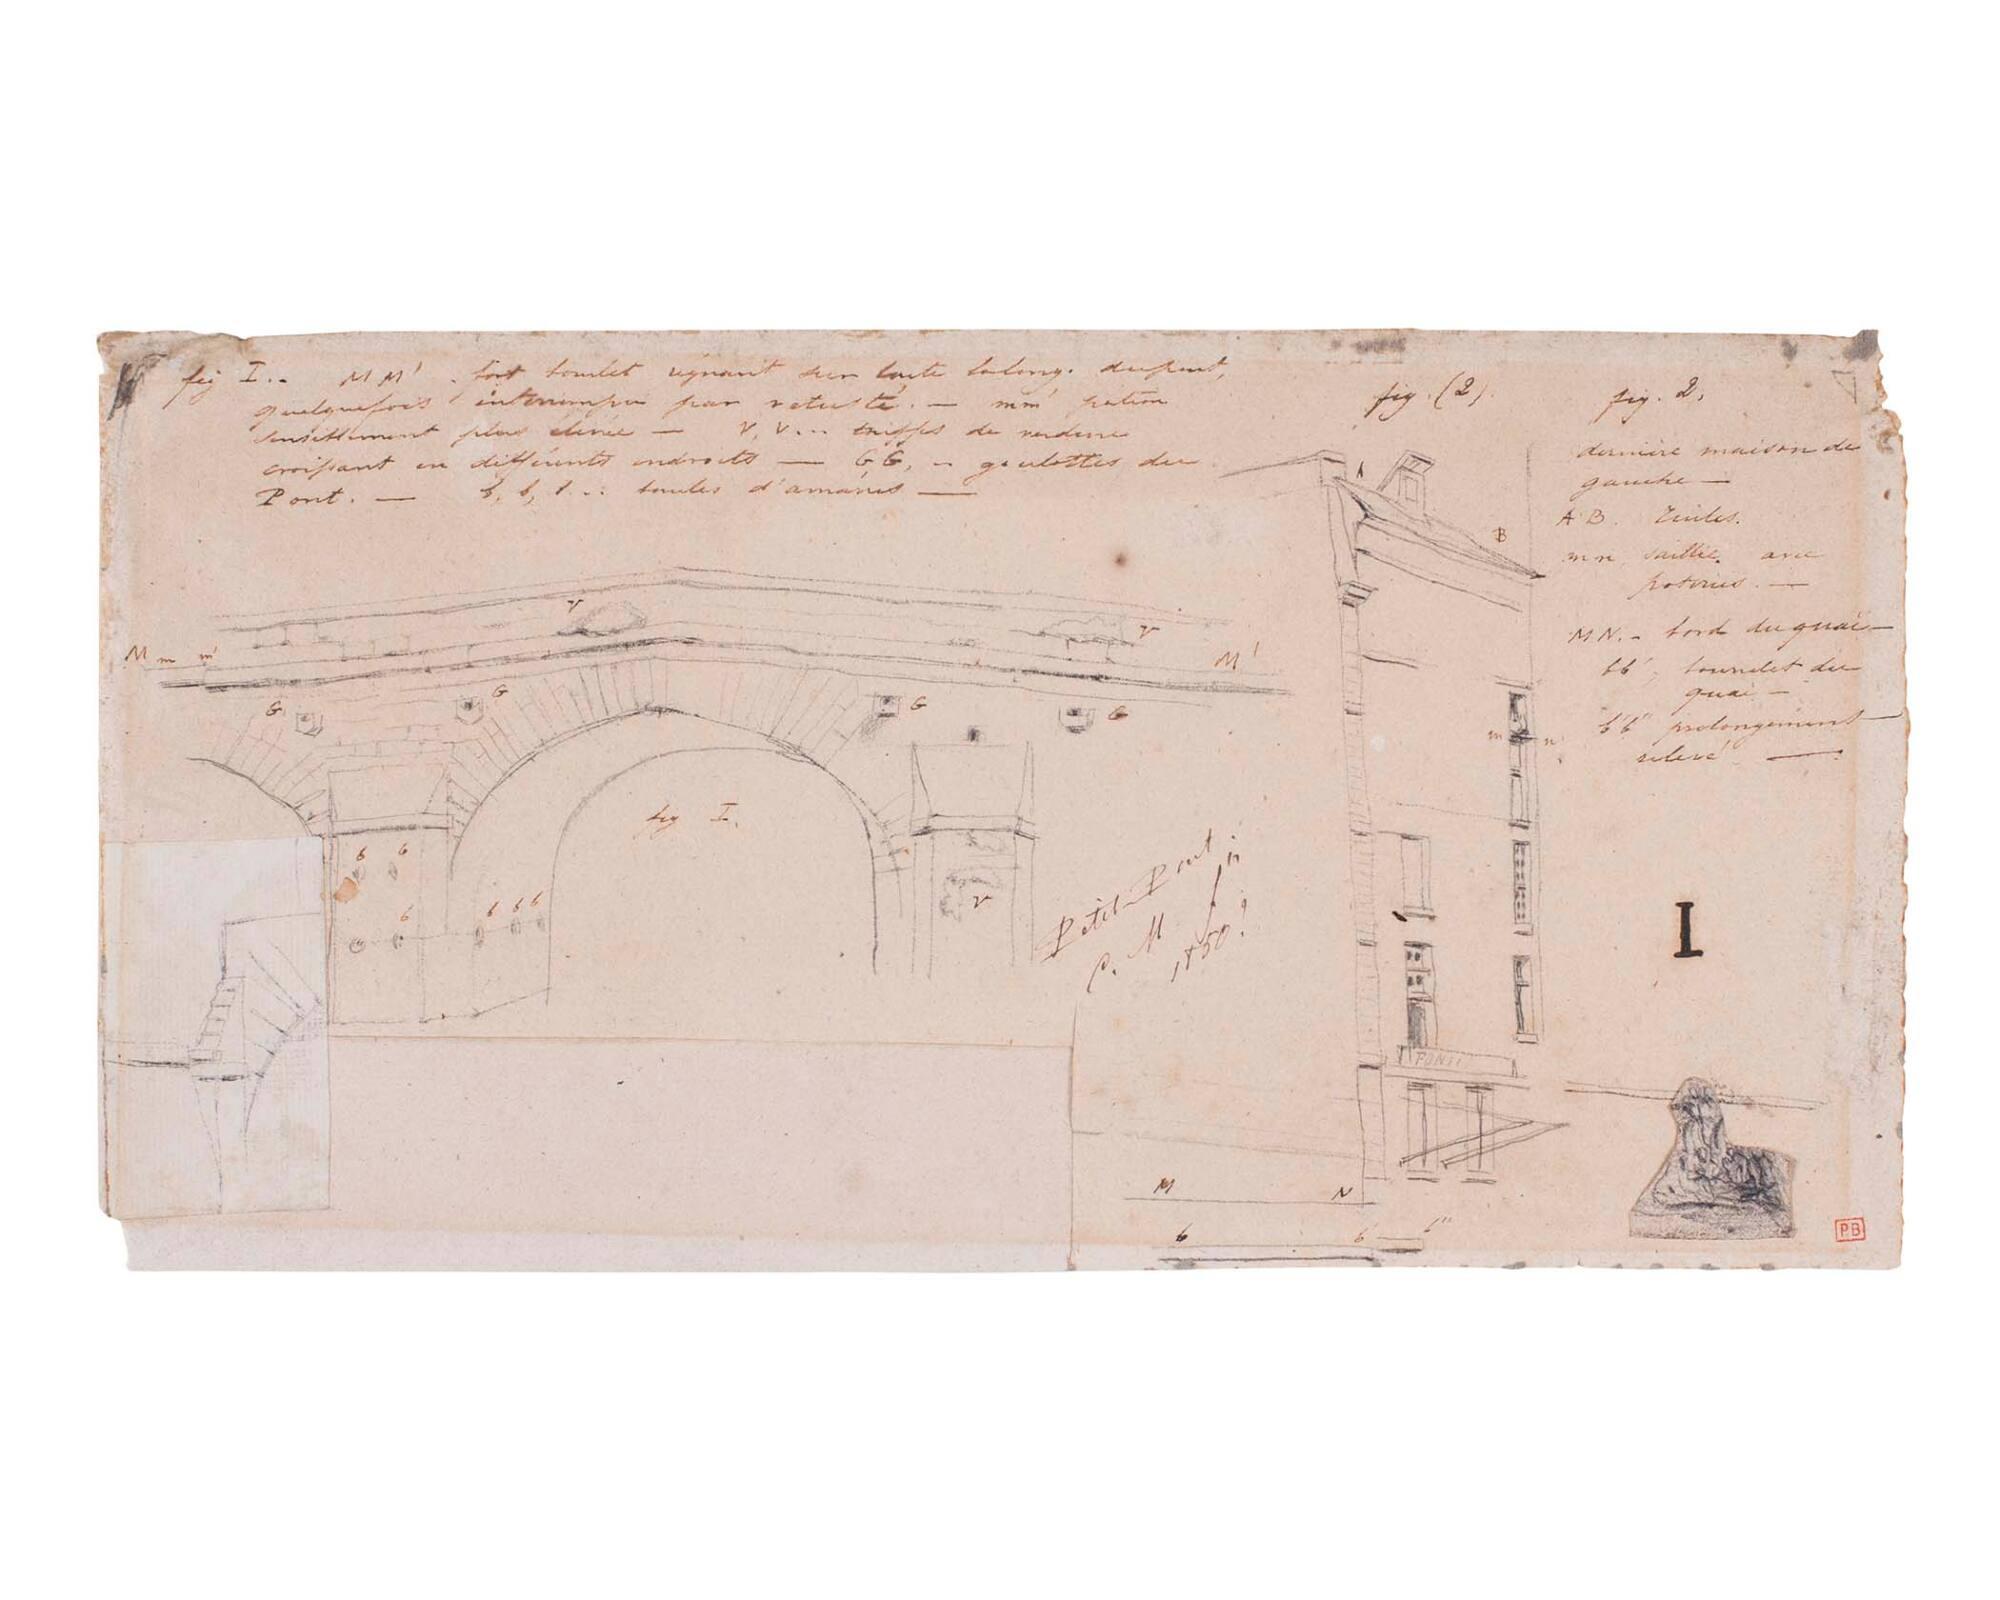 fig I.. M M' . fort boulet régnant sur toute la long. du pont,
quelquefois interrompu par vetusté. — mm'
sensiblement plus élevée — V, V... touffes de verdure
croissant en différents endroits — G G, .. goulottes du
Pont. — b, b, b... boucles d'amarres —
fig. (2).
fig. 2.
dernière maison de
gauche —
A B. Tuiles.
m n saillie. avec
poteries. —
M N. - bord du quai —
bb', bourrelet du
quai —
b'b" prolongement
relevé —
A
B
M m m'
V
V
M'
G
G
G
G
m n
fig I.
b b
b
b b b
V
Petit-Pont
C. M
1850!
I
PONTI
M N
b b' b"
PB